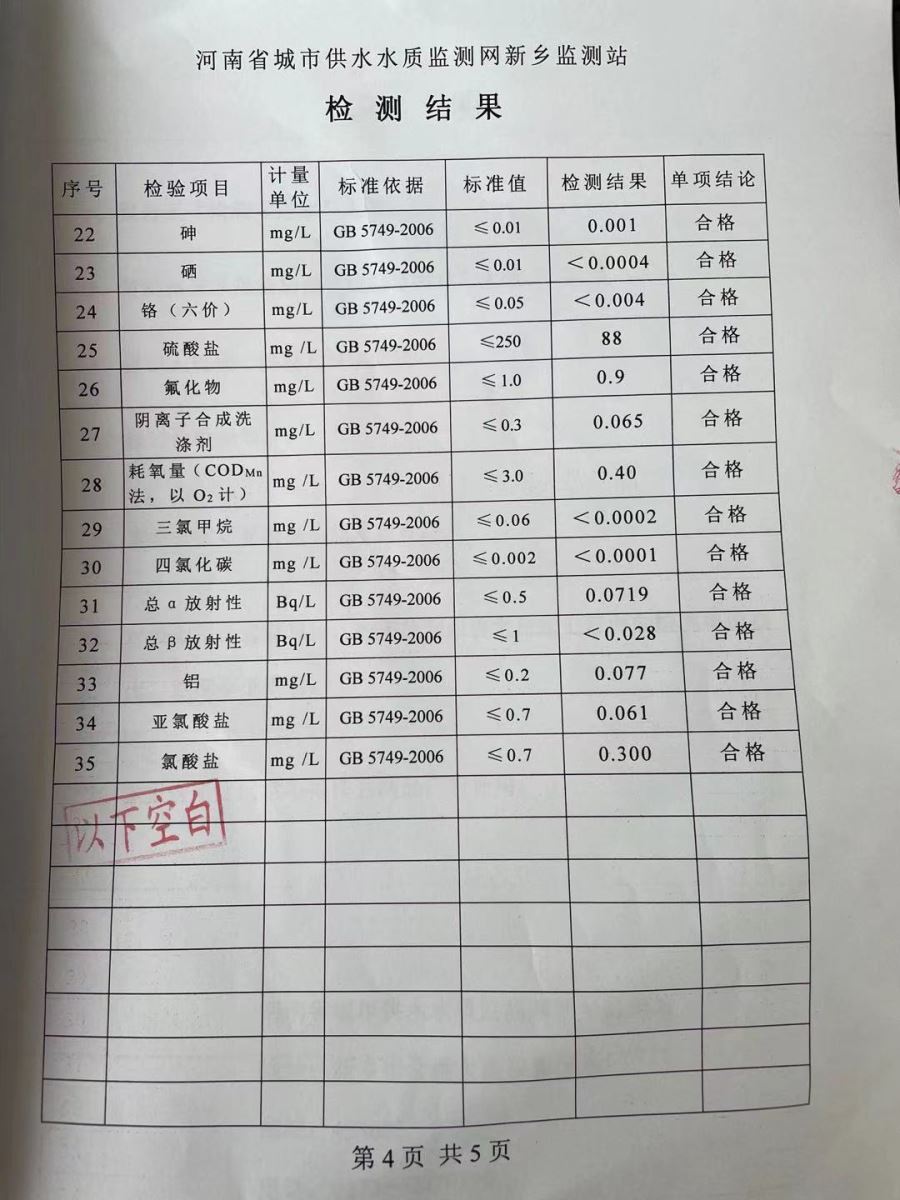 河南省城市供水水质监测网新乡监测站
检测结果
序号 检验项目 计量单位 标准依据 标准值 检测结果 单项结论
22 砷 mg/L GB 5749-2006 ≤0.01 0.001 合格
23 硒 mg/L GB 5749-2006 ≤0.01 <0.0004 合格
24 铬（六价） mg/L GB 5749-2006 ≤0.05 <0.004 合格
25 硫酸盐 mg /L GB 5749-2006 ≤250 88 合格
26 氟化物 mg/L GB 5749-2006 ≤1.0 0.9 合格
27 阴离子合成洗涤剂 mg/L GB 5749-2006 ≤0.3 0.065 合格
28 耗氧量（CODMn法，以 O2 计） mg /L GB 5749-2006 ≤3.0 0.40 合格
29 三氯甲烷 mg /L GB 5749-2006 ≤0.06 <0.0002 合格
30 四氯化碳 mg /L GB 5749-2006 ≤0.002 <0.0001 合格
31 总 α 放射性 Bq/L GB 5749-2006 ≤0.5 0.0719 合格
32 总 β 放射性 Bq/L GB 5749-2006 ≤1 <0.028 合格
33 铝 mg/L GB 5749-2006 ≤0.2 0.077 合格
34 亚氯酸盐 mg /L GB 5749-2006 ≤0.7 0.061 合格
35 氯酸盐 mg /L GB 5749-2006 ≤0.7 0.300 合格
以下空白
第4页 共5页